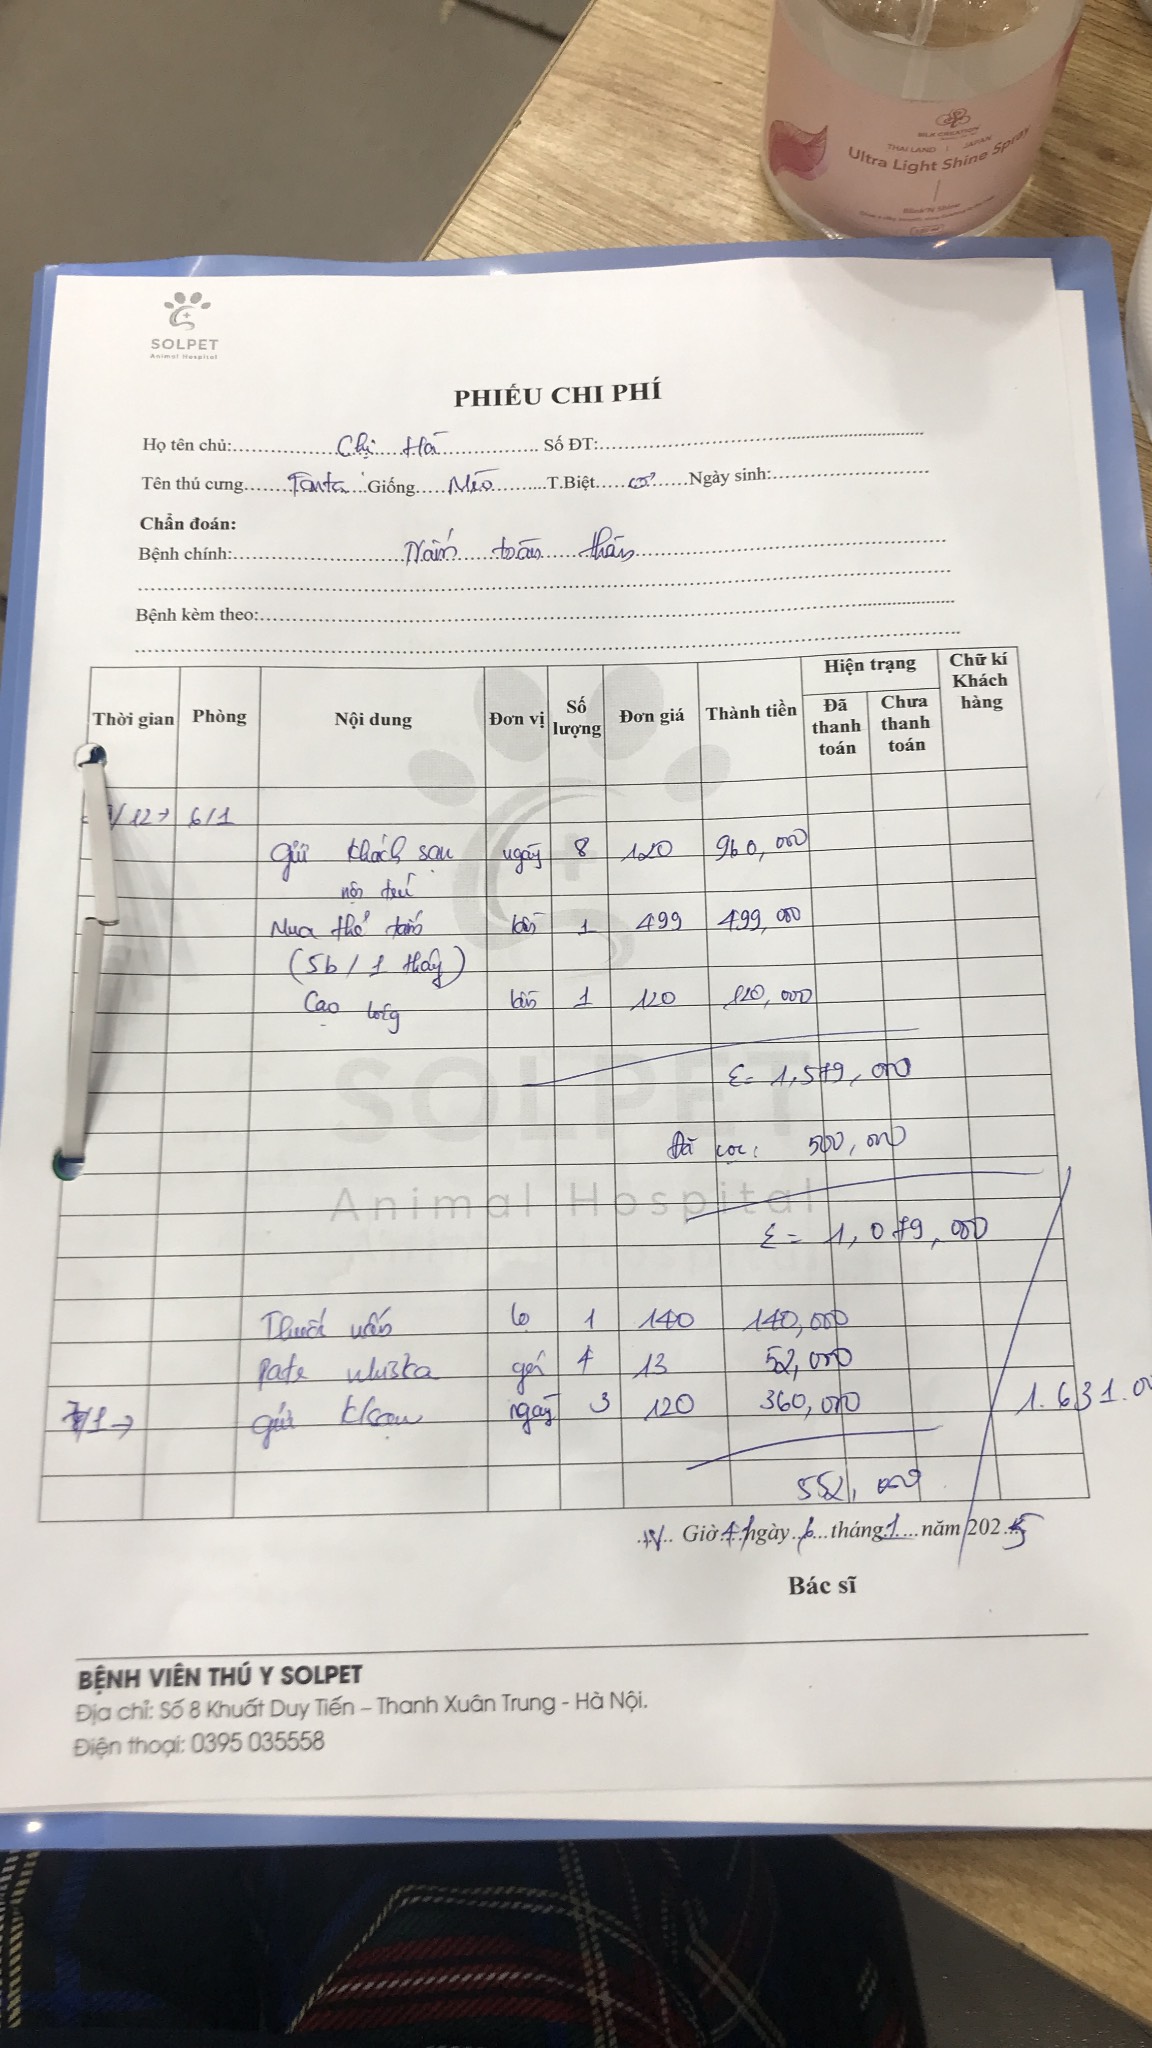 SILK CREATION
THAILAND | JAPAN
Ultra Light Shine Spray
SOLPET
Animal Hospital
PHIẾU CHI PHÍ
Họ tên chủ: Chị Hà Số ĐT:
Tên thú cưng Fanta Giống Mèo T.Biệt Ngày sinh:
Chẩn đoán:
Bệnh chính: Nấm toàn thân
Bệnh kèm theo:
Thời gian Phòng Nội dung Đơn vị Số lượng Đơn giá Thành tiền Hiện trạng Đã thanh toán Chưa thanh toán Chữ kí Khách hàng
/12→ 6/1
Gửi khách sạn ngày 8 120 960,000
nội trú
Mua thẻ tắm lần 1 499 499,000
(5b/1 thấy)
Cạo lông lần 1 120 120,000
Σ= 1,579,000
Đã cọc: 500,000
Σ= 1,079,000
Thuốc uống lọ 1 140 140,000
Pate whiska gói 4 13 52,000
7/1→ gửi ksạn ngày 3 120 360,000 1.631.0
552,000
Giờ ngày 6 tháng 1 năm 2025
Bác sĩ
SOLPET
Animal Hospital
BỆNH VIỆN THÚ Y SOLPET
Địa chỉ: Số 8 Khuất Duy Tiến – Thanh Xuân Trung - Hà Nội.
Điện thoại: 0395 035558